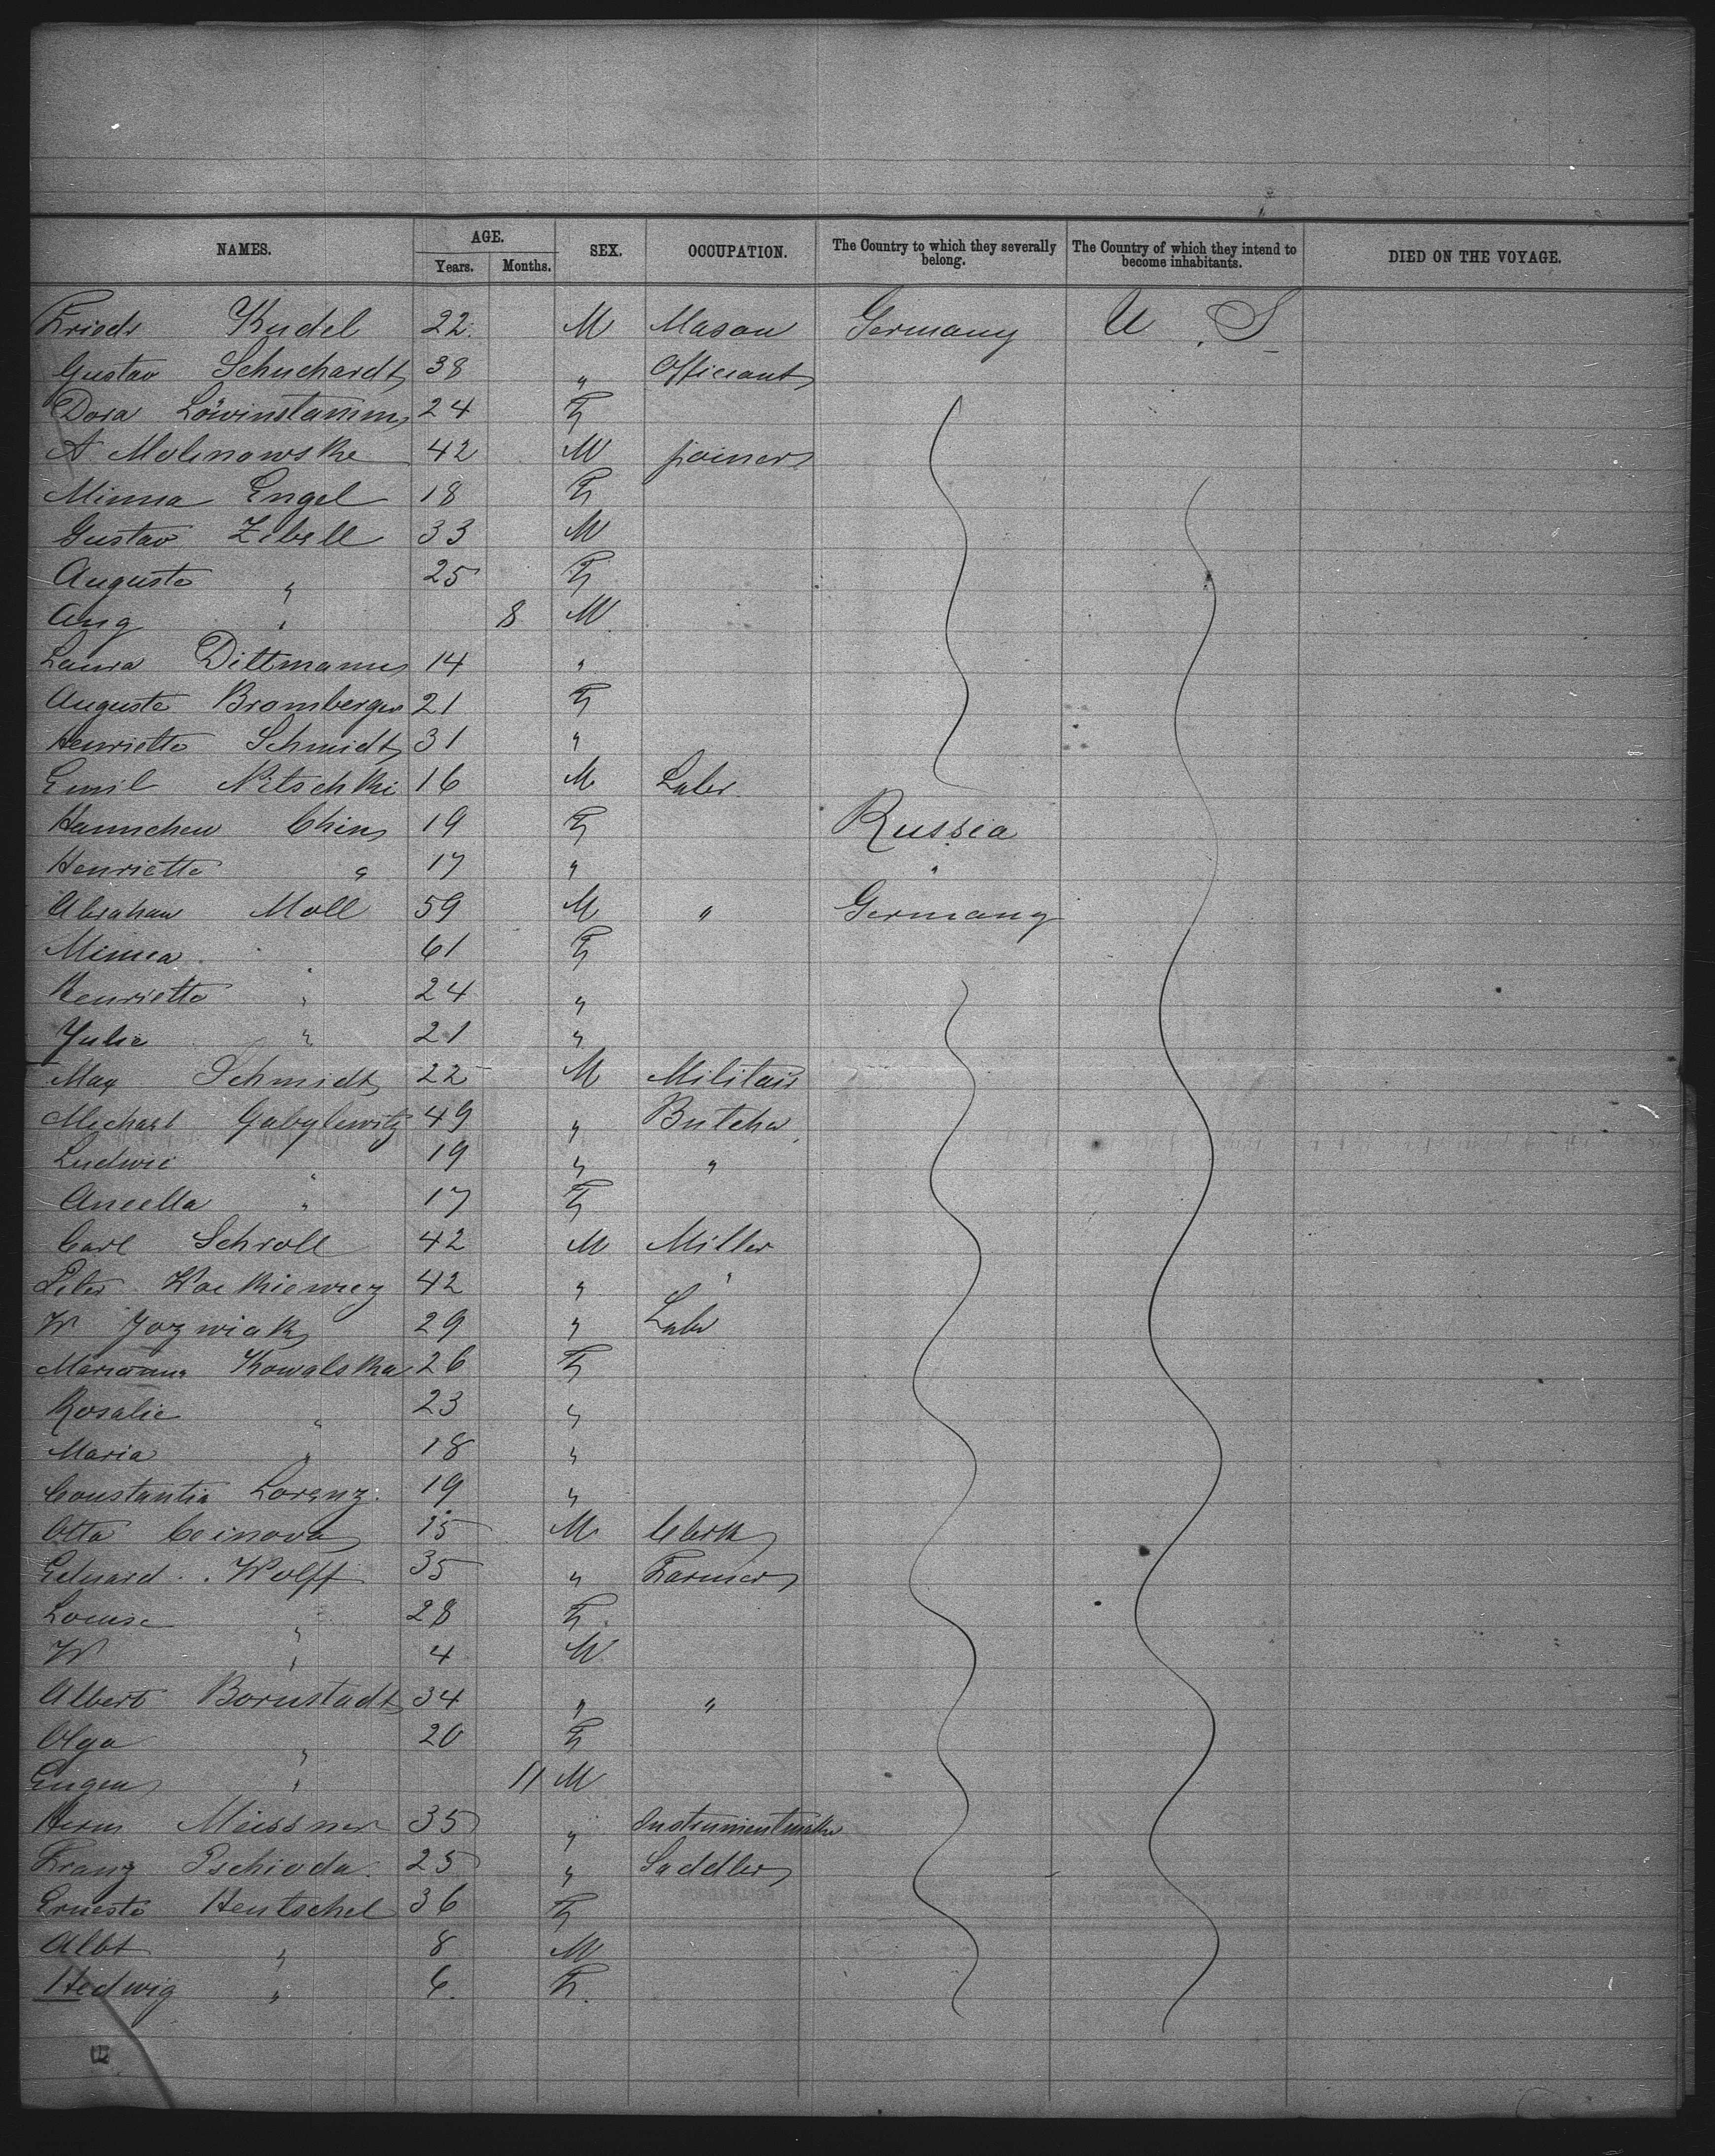 NAMES. AGE. SEX. OCCUPATION. The Country to which they severally belong. The Country of which they intend to become inhabitants. DIED ON THE VOYAGE.
Years. Months.
Friedr Kudel 22 M Mason Germany U. S
Gustav Schuchardt 38 " Officiant
Dora Löwinstamm 24 F
A Molinowske 42 M joiner
Minna Engel 18 F
Gustav Zibell 33 M
Auguste " 25 F
Aug " 8 M
Laura Dittmann 14 "
Auguste Bromberger 21 F
Henriette Schmidt 31 "
Emil Nitschki 16 M Labr
Hannchen Chin 19 F Russia
Henriette " 17 " "
Abraham Moll 59 M " Germany
Minna " 61 F
Henriette " 24 "
Julie " 21 "
Max Schmidt 22 M Militair
Michael Gabylewitz 49 " Butcher
Ludwic " 19 " "
Aneella " 17 F
Carl Schroll 42 M Miller
Peter 42 " "
W Jozwiak 29 " Labr
Marianna Kowalska 26 F
Rosalie " 23 "
Maria " 18 "
Constantia Lorenz 19 "
Otto Ceinova 15 M Clerk
Eduard Wolff 35 " Farmer
Louise " 28 F
W " 4 M
Albert Bornstadt 34 " "
Olga " 20 F
Eugen " 11 M
Herm Meissner 35 " Instrumentmaker
Franz Pschioda 25 " Saddler
Ernesto Hentschel 36 F
Albt " 8 M
Hedwig " 6 F.